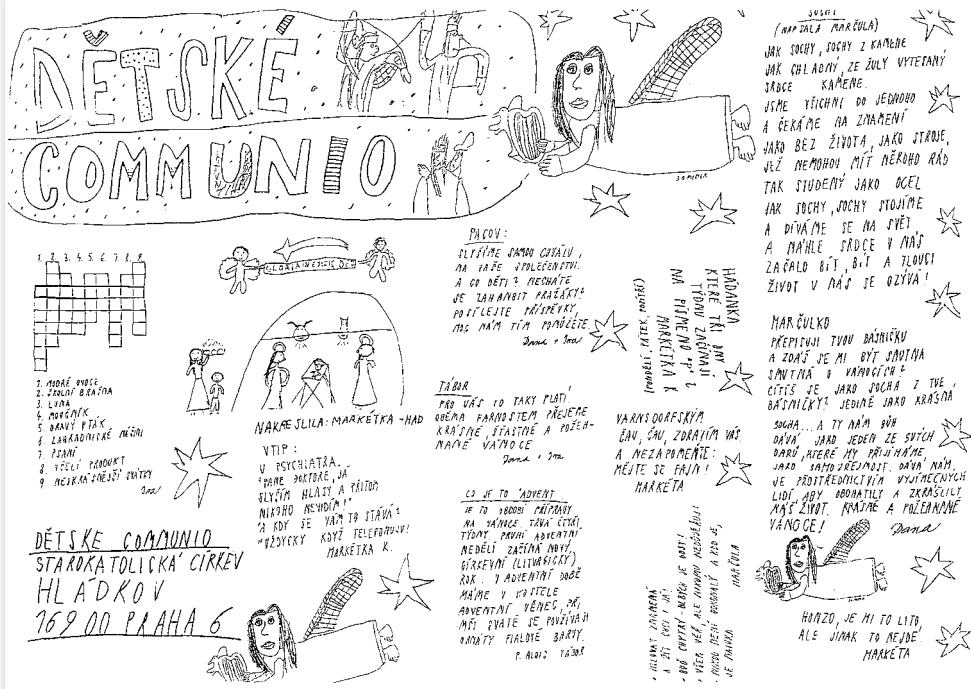 DĚTSKÉ
COMMUNIO
GLORIA IN EXCELSIS DEO
1. 2. 3. 4. 5. 6. 7. 8. 9.
1. MODRÉ OVOCE
2. ŠKOLNÍ BRAŠNA
3. LUNA
4. MOUČNÍK
5. DRAVÝ PTÁK
6. ZAHRADNICKÉ
7. PSANÍ
8. VČELÍ PRODUKT
9. NEJKRÁSNĚJŠÍ SVÁTKY
Ina
NAKRESLILA: MARKÉTKA - HAD
VTIP:
U PSYCHIATRA.
"PANE DOKTORE, JÁ
SLYŠÍM HLASY A PŘITOM
NIKOHO NEVIDÍM!"
"A KDY SE VÁM TO STÁVÁ?
"VŽDYCKY KDYŽ TELEFONUJU!
MARKÉTKA K.
DĚTSKÉ COMMUNIO
STAROKATOLICKÁ CÍRKEV
HLÁDKOV
169 00 PRAHA 6
PACOV:
SLYŠÍME SAMOU CHVÁLU,
NA VAŠE SPOLEČENSTVÍ.
A CO DĚTI? NECHÁTE
SE ZAHANBIT PRAŽÁKY?
POSÍLEJTE PŘÍSPĚVKY,
MOC NÁM TÍM POMŮŽETE.
Dana + Ina
TÁBOR
PRO VÁS TO TAKY PLATÍ
OBĚMA FARNOSTEM PŘEJEME
KRÁSNÉ, ŠŤASTNÉ A POŽEH-
NANÉ VÁNOCE
Dana + Ina
CO JE TO "ADVENT"
JE TO OBDOBÍ PŘÍPRAVY
NA VÁNOCE. TRVÁ ČTYŘI
TÝDNY. PRVNÍ ADVENTNÍ
NEDĚLÍ ZAČÍNÁ NOVÝ
CÍRKEVNÍ (LITURGICKÝ)
ROK. V ADVENTNÍ DOBĚ
MÁME V KOSTELE
ADVENTNÍ VĚNEC, PŘI
MŠI SVATÉ SE POUŽÍVAJÍ
ORNÁTY FIALOVÉ BARVY.
P. ALOIS TÁBOR
DOMINIK
HÁDANKA
KTERÉ TŘI DNY
TÝDNU ZAČÍNAJÍ
NA PÍSMENO "P"?
MARKÉTKA K
(PONDĚLÍ, PÁTEK, POZÍTŘÍ)
VARNSDORFSKÝM
ČAU, ČAU, ZDRAVÍM VÁS
A NEZAPOMEŇTE:
MĚJTE SE FAJN!
MARKÉTA
A ŽÍT CHCI I JÁ!
MARČULA
SOCHY
(NAPSALA MARČULA)
JAK SOCHY, SOCHY Z KAMENE
JAK CHLADNÝ, ZE ŽULY VYTESANÝ
SRDCE KAMENE.
JSME VŠICHNI DO JEDNOHO
A ČEKÁME NA ZNAMENÍ
JAKO BEZ ŽIVOTA, JAKO STROJE,
JEŽ NEMOHOU MÍT NĚKOHO RÁD
TAK STUDENÝ JAKO OCEL
JAK SOCHY, SOCHY STOJÍME
A DÍVÁME SE NA SVĚT
A NÁHLE SRDCE V NÁS
ZAČALO BÍT, BÍT A TLOUCI
ŽIVOT V NÁS SE OZÝVÁ!
MARČULKO
PŘEPISUJI TVOU BÁSNIČKU
A ZDÁŠ SE MI BÝT SMUTNÁ
SMUTNÁ O VÁNOCÍCH?
CÍTÍŠ SE JAKO SOCHA Z TVÉ
BÁSNIČKY? JEDINĚ JAKO KRÁSNÁ
SOCHA... A TY NÁM BŮH
DÁVÁ JAKO JEDEN ZE SVÝCH
DARŮ, KTERÉ MY PŘIJÍMÁME
JAKO SAMOZŘEJMOST. DÁVÁ NÁM,
JE PROSTŘEDNICTVÍM VYJÍMEČNÝCH
LIDÍ, ABY OBOHATILY A ZKRÁŠLILY
NÁŠ ŽIVOT. KRÁSNÉ A POŽEHNANÉ
VÁNOCE!
Dana
HONZO, JE MI TO LÍTO,
ALE JINAK TO NEJDE.
MARKÉTA